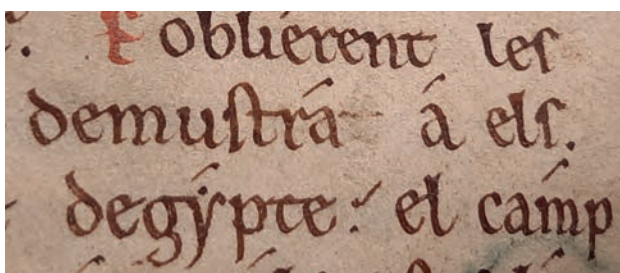 E obliérent les
demustrá á els.
degẏpte. el cámp